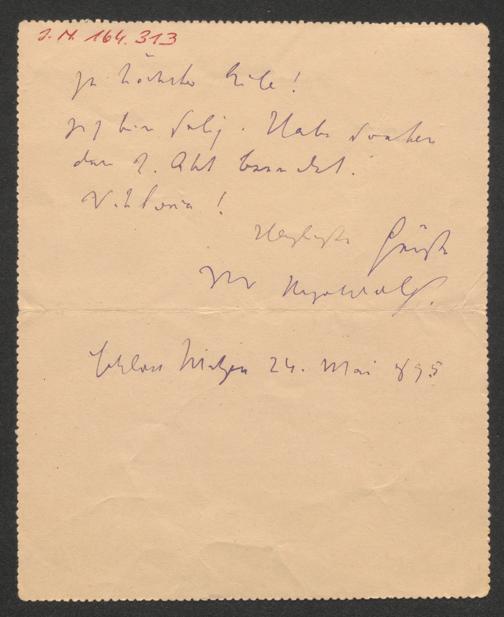 J.N. 164.313
In höchster Eile!
Ich bin selig. Habe soeben
den 2. Akt beendet.
Viktoria!
Herzlichste Grüße
Ihr Hugo Wolf.
Schloss Matzen 24. Mai 895